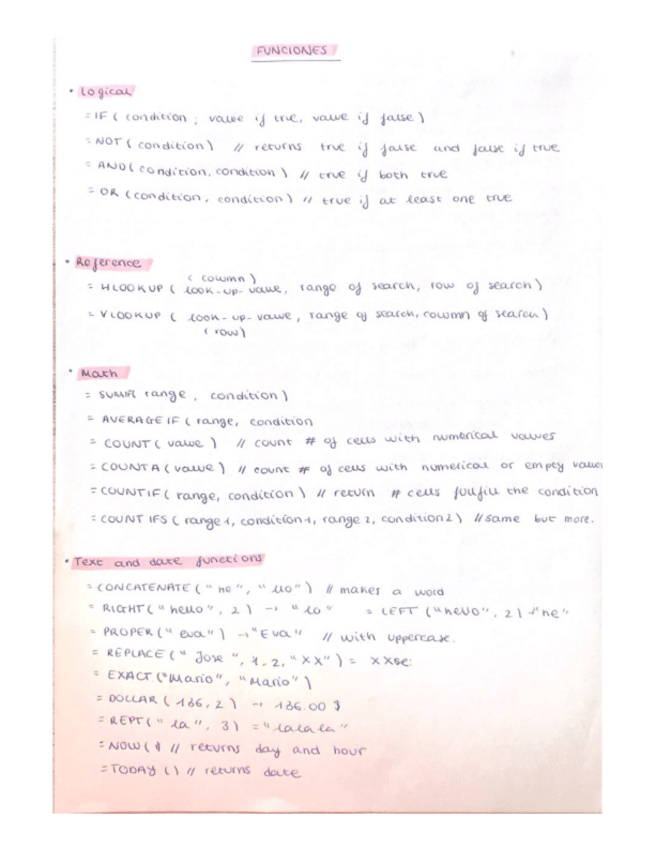 FUNCIONES
• Logical
= IF ( condition ; value if true, value if false )
= NOT ( condition) // returns true if false and false if true
= AND ( condition, condition ) // true if both true
= OR ( condition, condition ) // true if at least one true
• Reference
( column )
= HLOOKUP ( look-up-value, range of search, row of search )
= VLOOKUP ( look-up-value, range of search, column of search )
( row)
• Math
= SUMIF( range , condition )
= AVERAGE IF ( range, condition
= COUNT ( value ) // count # of cells with numerical values
= COUNT A ( value ) // count # of cells with numerical or empty values
= COUNTIF ( range, condition ) // return # cells fulfill the condition
= COUNT IFS ( range 1, condition 1, range 2, condition 2 ) // same but more.
• Text and date functions
= CONCATENATE ( "he", "llo") // makes a word
= RIGHT ( "hello", 2 ) → "lo" = LEFT ("hello", 2) → "he"
= PROPER ( "eva") → "Eva" // with uppercase.
= REPLACE ( " Jose ", 1, 2, "XX" ) = XXse.
= EXACT ("Mario", "Mario")
= DOLLAR ( 136, 2 ) → 136.00 $
= REPT ( "la", 3 ) = "lalala"
= NOW () // returns day and hour
= TODAY () // returns date